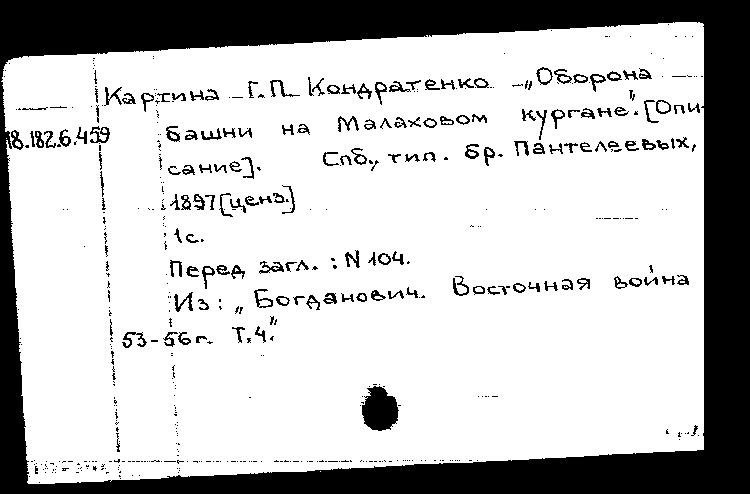 Картина Г.П. Кондратенко „Оборона
18.182.6.459
башни на Малаховом кургане". [Опи-
сание]. Спб., тип. бр. Пантелеевых,
1897 [ценз.]
1 с.
Перед загл.: N 104.
Из: „Богданович. Восточная война
53-56 г. Т.4."